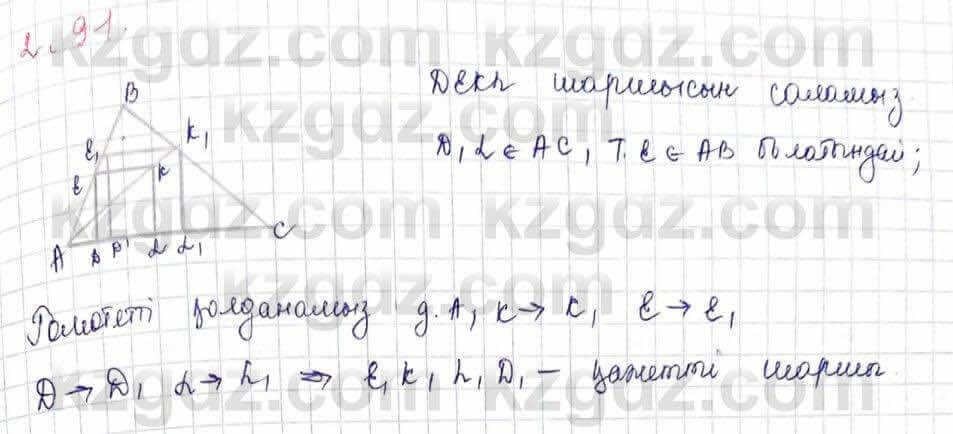 2.91.
B
E₁ K₁
E K
A D D₁ L L₁ C
DEKL шаршысын саламыз
D, L ∈ AC, т. E ∈ AB болатындай;
Гомотетті қолданамыз g. A, K → K₁ E → E₁
D → D₁ L → L₁ ⇒ E₁ K₁ L₁ D₁ – қажетті шаршы.
kzgaz.com kzgaz.com
kzgaz.com
kzgaz.com kzgaz.com
kzgaz.com
kzgaz.com kzgaz.com
kzgaz.com kzgaz.com